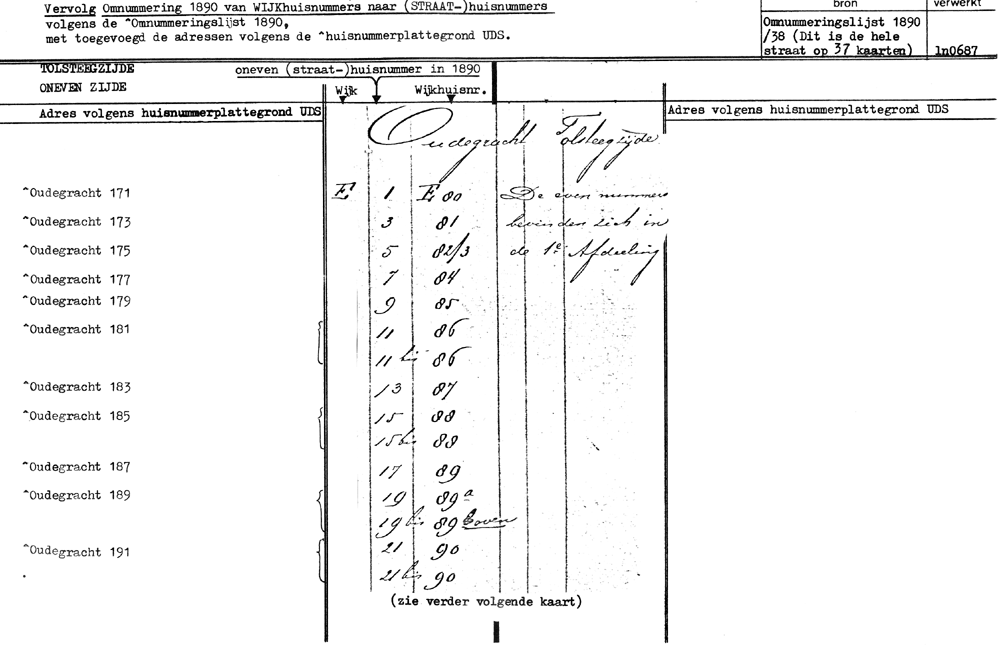 Vervolg Omnummering 1890 van WIJKhuisnummers naar (STRAAT-)huisnummers
volgens de ^Omnummeringslijst 1890,
met toegevoegd de adressen volgens de ^huisnummerplattegrond UDS.
bron
verwerkt
Omnummeringslijst 1890
/38 (Dit is de hele
straat op 37 kaarten)
1n0687
TOLSTEEGZIJDE
ONEVEN ZIJDE
oneven (straat-)huisnummer in 1890
Wijk
Wijkhuisnr.
Adres volgens huisnummerplattegrond UDS
Adres volgens huisnummerplattegrond UDS
Oudegracht Tolsteegzijde
^Oudegracht 171 E 1 E 80 De even nummers
^Oudegracht 173 3 81 bevinden zich in
^Oudegracht 175 5 82/3 de 1e Afdeeling
^Oudegracht 177 7 84
^Oudegracht 179 9 85
^Oudegracht 181 11 86
11 bis 86
^Oudegracht 183 13 87
^Oudegracht 185 15 88
15 bis 88
^Oudegracht 187 17 89
^Oudegracht 189 19 89 a
19 bis 89 boven
^Oudegracht 191 21 90
21 bis 90
(zie verder volgende kaart)